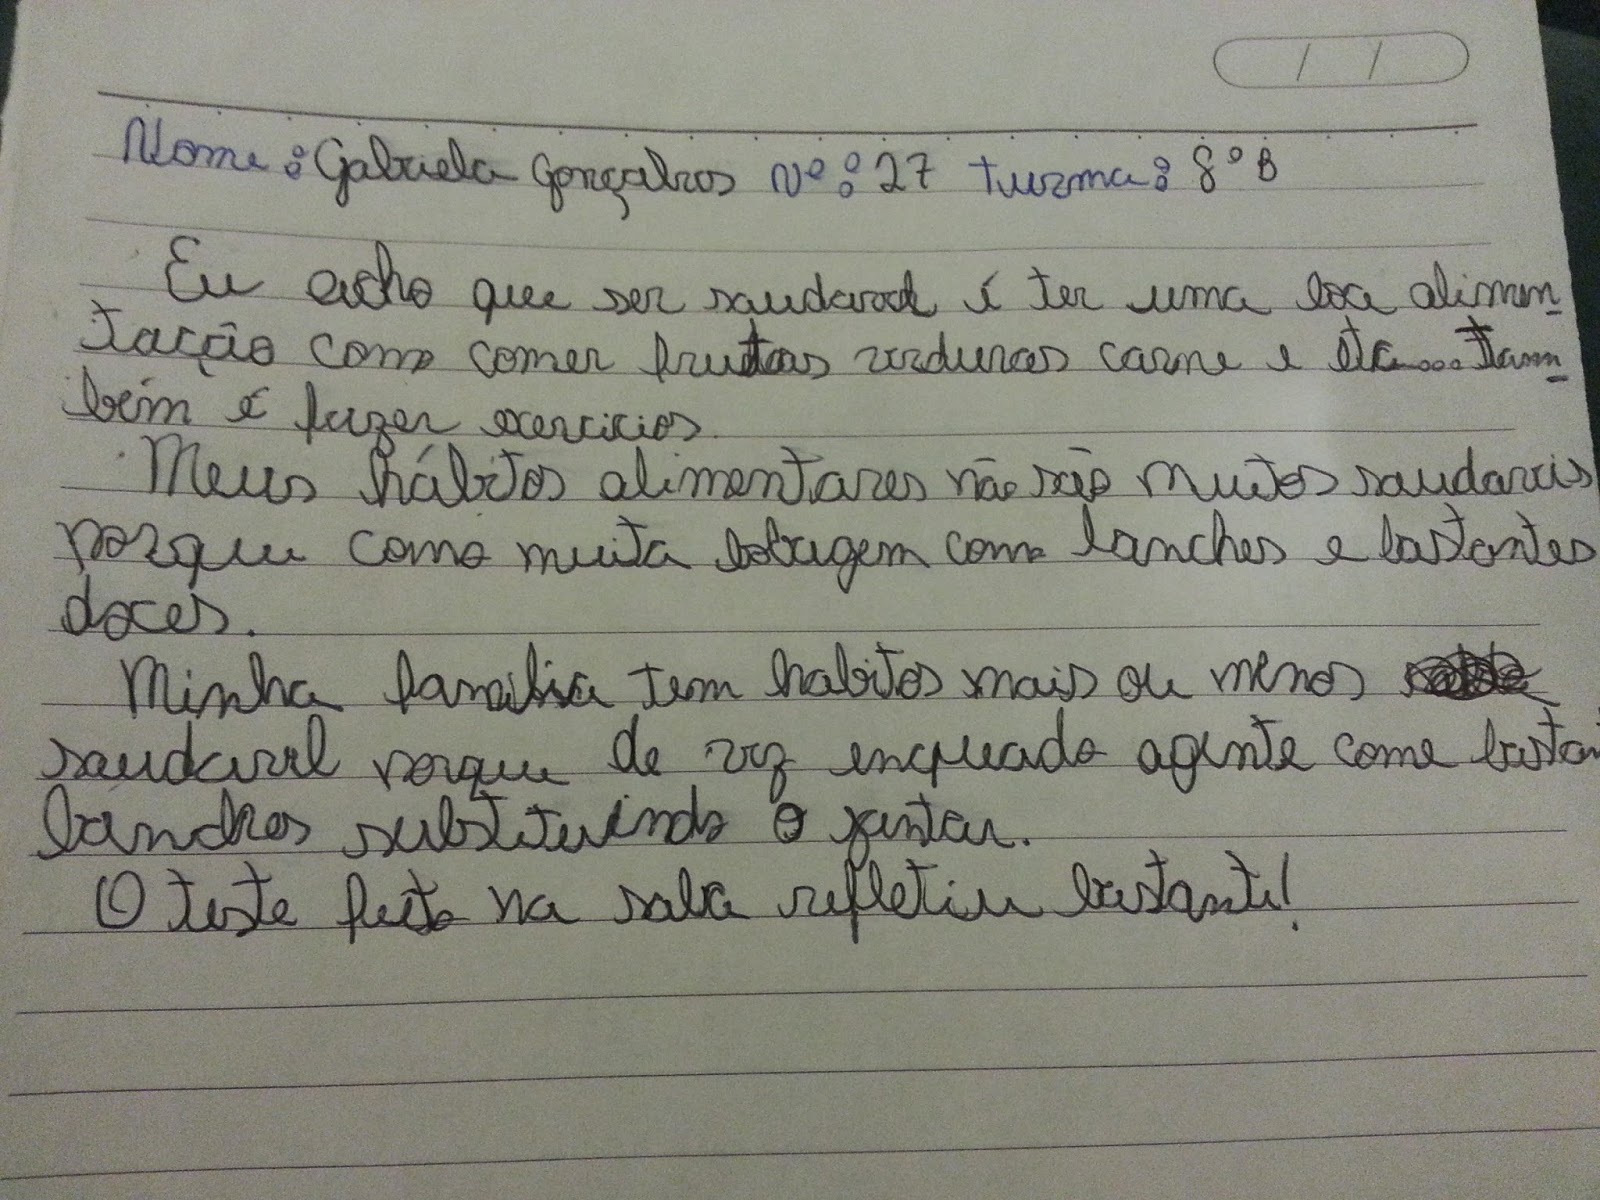 Nome: Gabriela Gonçalves Nº: 27 turma: 8ºB
Eu acho que ser saudavel é ter uma boa alimen-
tação como comer frutas verduras carne e etc... Tam-
bém é fazer exercicios.
Meus hábitos alimentares não são muitos saudaveis
porque como muita bobagem como lanches e bastantes
doces.
Minha familia tem habitos mais ou menos
saudavel porque de vez enquado agente come
lanches substituindo o jantar.
O teste feito na sala refletiu bastante!